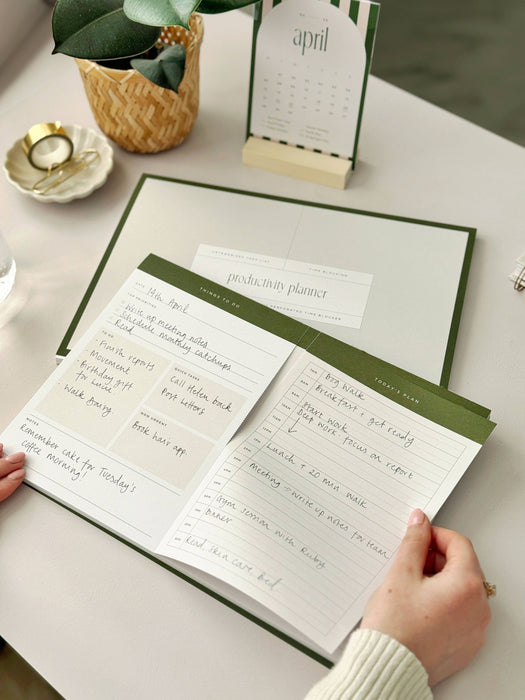 april
productivity planner
TIME BLOCKING
THINGS TO DO
DATE 14th April
TOP PRIORITIES
Write up meeting notes
Schedule monthly catchups
Read
TO DO
Finish reports
Movement
Birthday gift
for Lucie
Walk Barny
QUICK TASKS
Call Helen back
Post letters
NON URGENT
Book hair app.
NOTES
Remember cake for Tuesday's
coffee morning!
TODAY'S PLAN
Dog Walk
Breakfast + get ready
Start work
Deep work: focus on report
Lunch + 20 min walk
Meeting → write up notes for team
Gym session with Ruby
Dinner
Read, Skin care, Bed